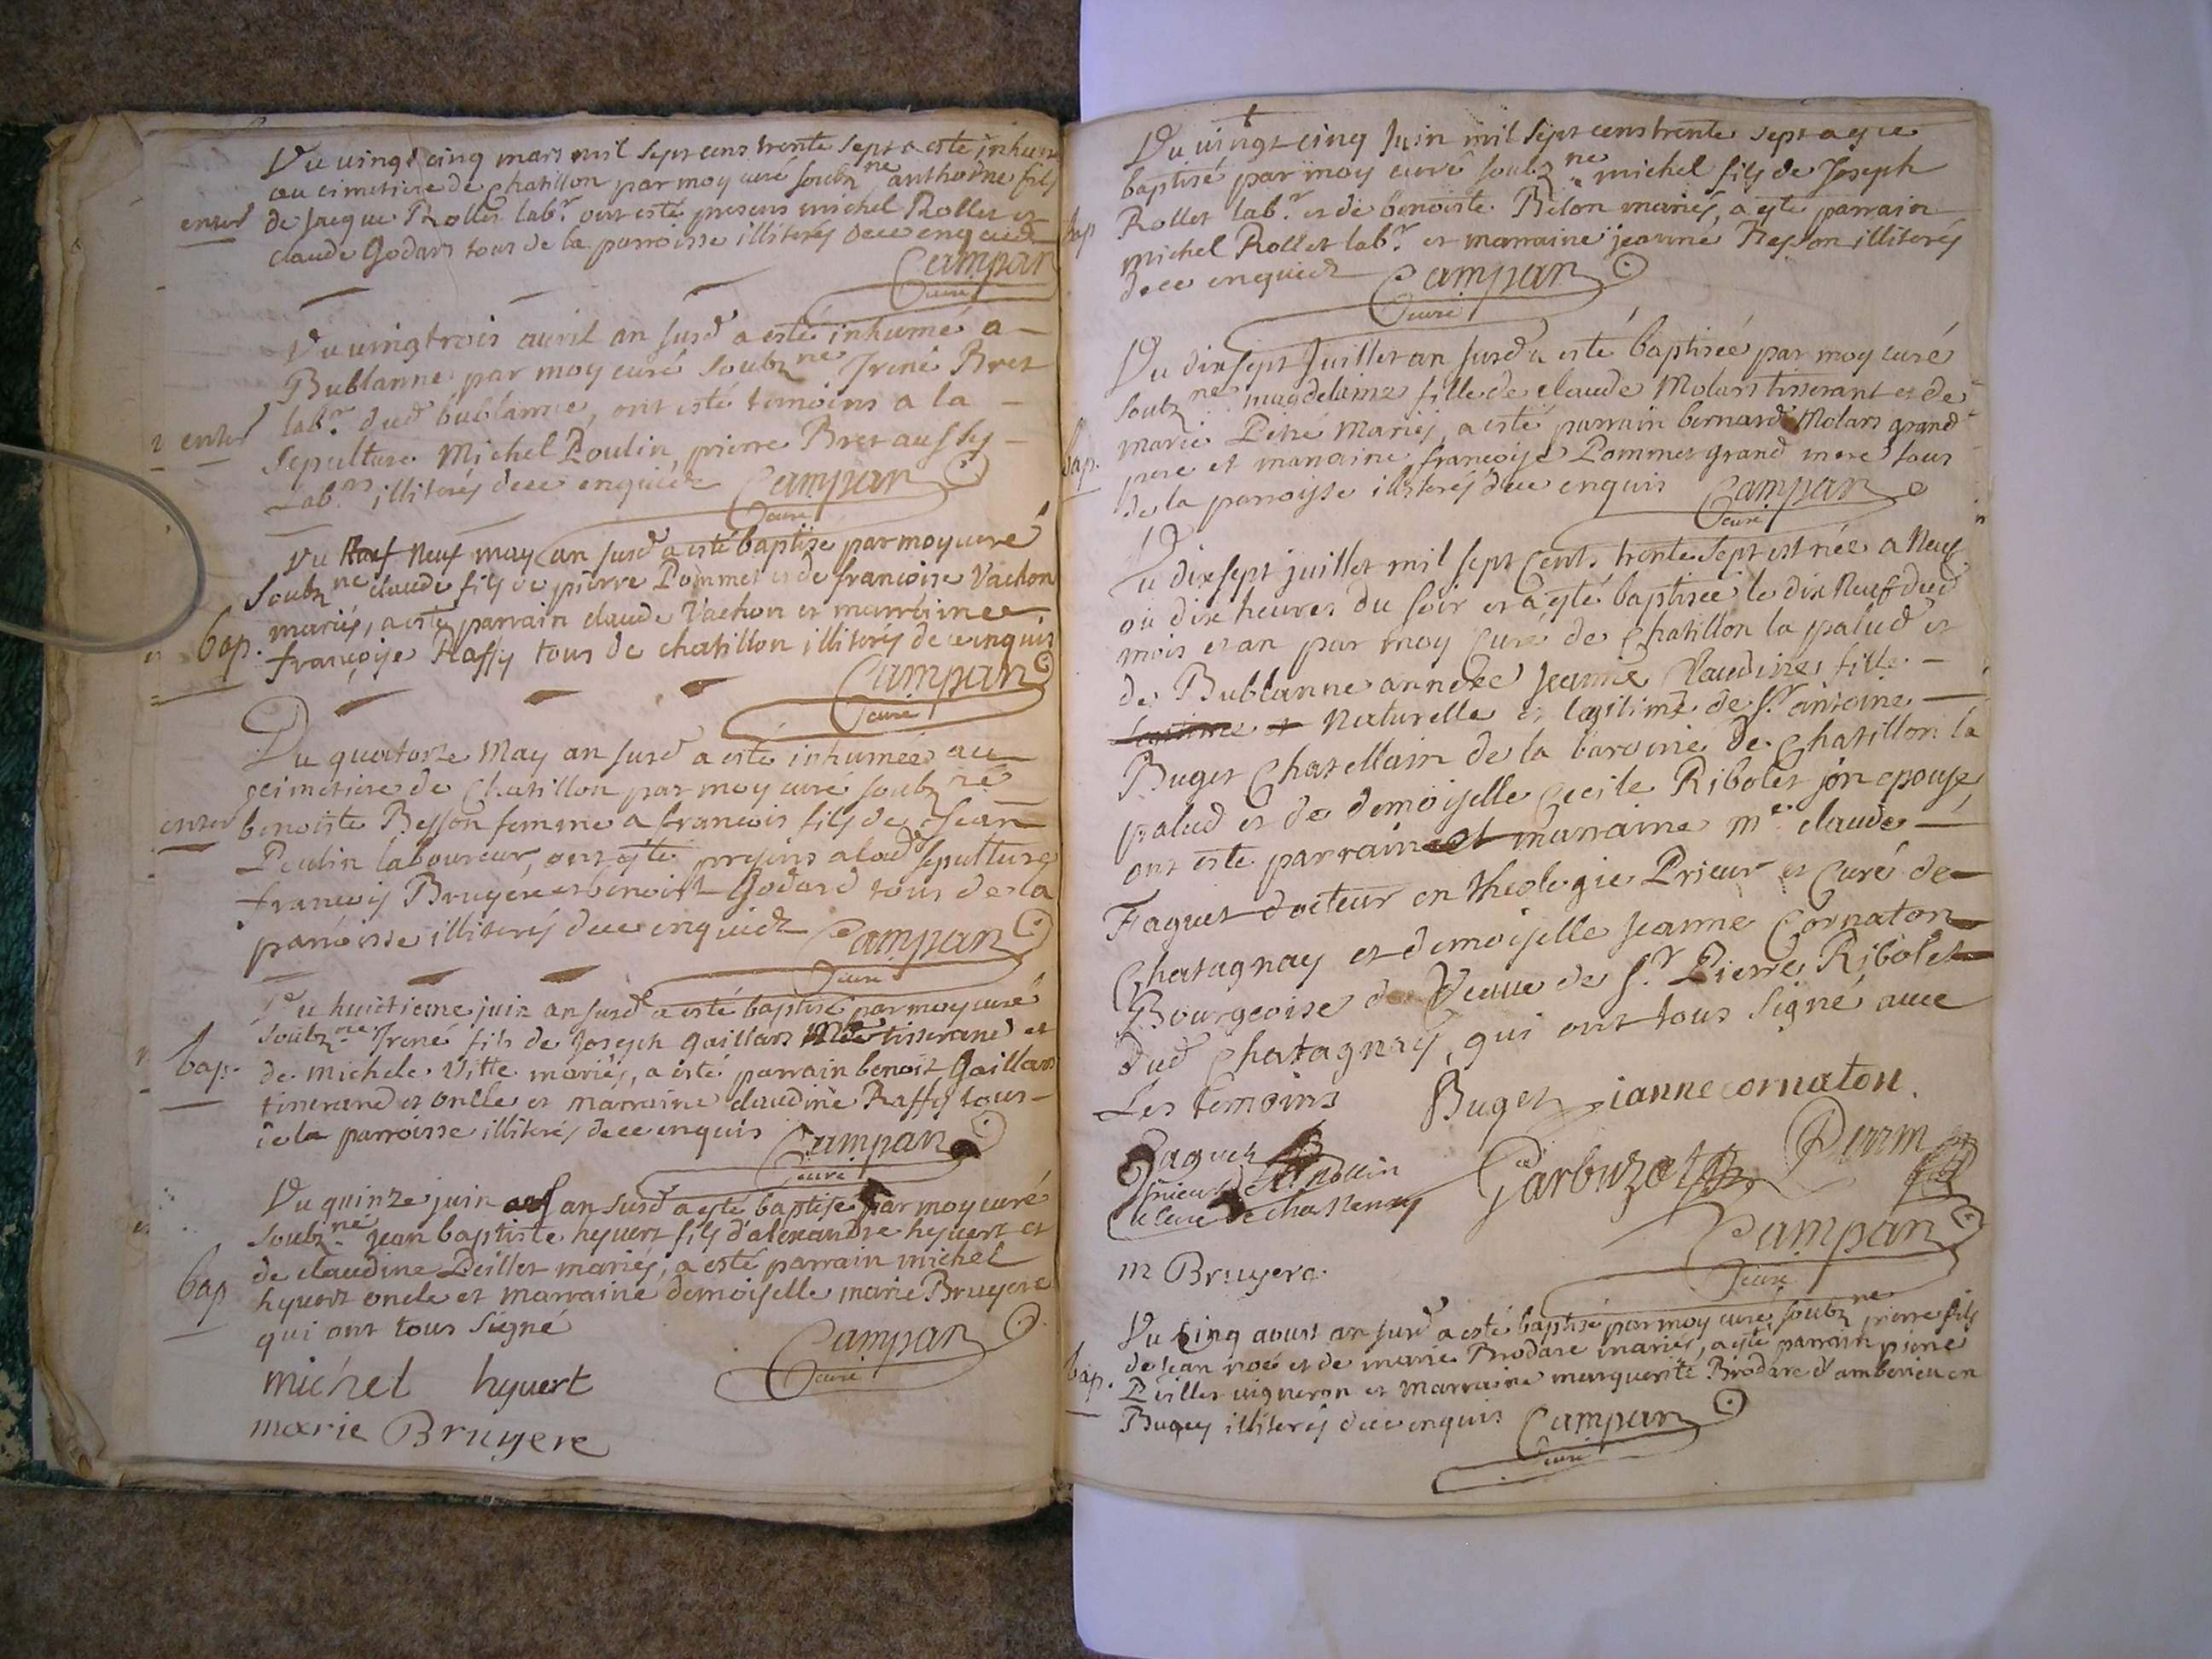 Du vingt cinq mars mil sept cens trente sept a esté inhum
au cimetiere de chatillon par moy curé soubz ne anthoine fils
enter de Jacque Rollet lab.r ont esté presens michel Rollet et
claude Godars tous de la parroisse illiterés de ce enquiez
Campan
curé
Du vingtrois avril an susd a esté inhumé a
Bublanne par moy curé soubz ne Irené Bret
enter lab.r dud bublanne, ont esté temoins a la
sepulture Michel Poulin pierre Bret aussy
Lab.rs illiterés de ce enquiéz Campan
curé
Du Neuf may an susd a esté baptisé par moy curé
soubz ne claude fils de pierre Pommet et de francoise Vachon
bap. mariés, a esté parrain claude Vachon et marraine
françoise Raffy tous de chatillon illiterés de ce enquis
Campan
curé
Du quatorze May an susd a esté inhumée au
ceimetiere de Chatillon par moy curé soubz né
enter benoiste Besson femme a francois fils de Jean
Poulin laboureur, ont esté presens a lad sepulture
francois Bruyere et benoist Godard tous de la
parroisse illiterés de ce enquiéz Campan
curé
Du huictieme juin an susd a esté baptisé par moy curé
soubz ne Irené fils de Joseph Gaillars tisserand et
bap. de michele Vitte mariés, a esté parrain benoit Gaillars
tisserand et oncle et marraine claudine Raffy tous
de la parroisse illiterés de ce enquis
Campan
curé
Du quinze juin an susd a esté baptisé par moy curé
soubz né jean baptiste hyvert fils d'alexandre hyvert et
de claudine Peillet mariés, a esté parrain michel
bap hyvert oncle et marraine demoiselle marie Bruyere
qui ont tous signé
Campan
curé
michel hyvert
marie Bruyere
Du vingt cinq Juin mil sept cens trente sept a esté
baptisé par moy curé soubz ne michel fils de Joseph
bap Rollet lab.r et de benoiste Belon mariés, a esté parrain
michel Rollet lab.r et marraine jeanne Besson illiterés
de ce enquiez Campan
curé
Du dix sept Juillet an susd a esté baptisée par moy curé
soubz ne magdelaine fille de claude Molars tisserant et de
bap. marie Peiné Mariés, a esté parrain bernard Molars grand
pere et marraine francoise Pommet grand mere tous
de la parroisse illiterés de ce enquis Campan
curé
Du dix sept juillet mil sept cents trente sept est née a Neuf
ou dix heures du soir et a esté baptisée le dix Neuf dud
mois et an par moy curé de chatillon la palud et
de Bublanne annexe Jeanne Claudine fille
Naturelle et legitime de S.r antoine
Buget Chatellain de la baronie de Chatillon la
palud et de demoiselle Cecile Ribolet son epouse
ont esté parrain et marraine m.e claude
Faguet docteur en theologie Prieur et Curé de
Chatagnay et demoiselle jeanne Cornaton
Bourgeoise de Veuve de S.r Pierre Ribolet
dud Chatagnay, qui ont tous signé avec
Les temoins Buget jianne cornaton.
Faguet
prieur
Garbuzat
Perrin
Campan
curé
m Bruyere.
Du cinq aoust an susd a esté baptisé par moy curé soubz ne pierre fils
de Jean noé et de marie Brodare mariés, a esté parrain pierre
bap. Peillet vigneron et marraine marguerite Brodare d'amberieu en
Bugey illiterés de ce enquis Campan
curé